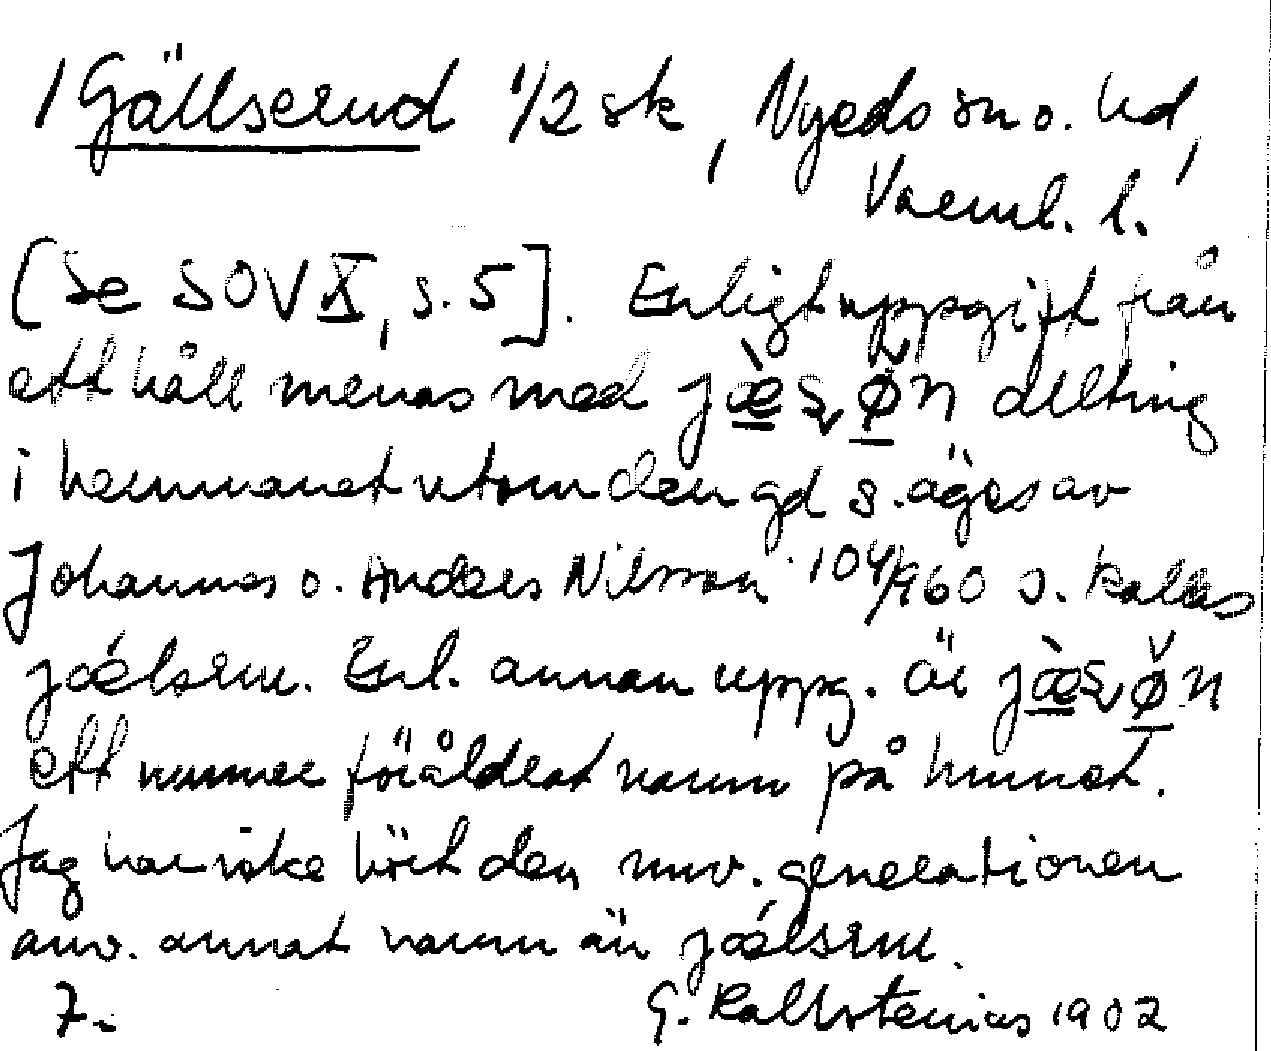 1 Gällserud 1/2 sk, Nyeds sn o. hd,
Vaerml. l.
[Se SOV X, s. 5]. Enligt uppgift från
ett håll menas med allting
i hemmanet utom den gd s. äges av
Johannes o. Anders Nilsson 104/960 s. kallas
jǽlsru. Enl. annan uppg. är
ett numer föråldrat namn på hmnet.
Jag har icke hört den nuv. generationen
anv. annat namn än jǽlsru.
7. G. Kallstenius 1902